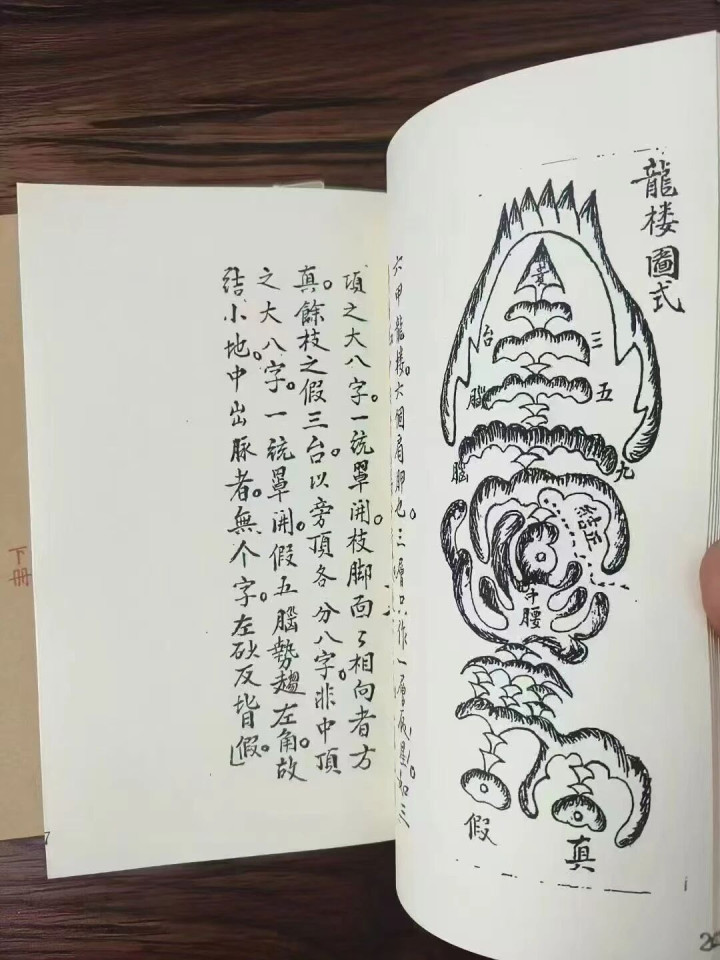 龍楼圖式
貴
三台
五腦
九腦
腰
真
假
六甲龍楼。六個肩脚也。三層只作一層辰星。如三
頂之大八字。一統罩開。枝脚面々相向者方
真。餘枝之假三台。以旁頂各分八字。非中頂
之大八字。一統罩開。假五腦勢趨左角。故
結小地。中出脉者。無个字。左砂反皆假。」
下冊
7